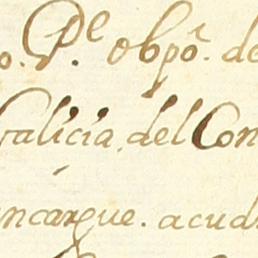 o. P.e obpo.r de
Galicia. del Con
encargue. acud